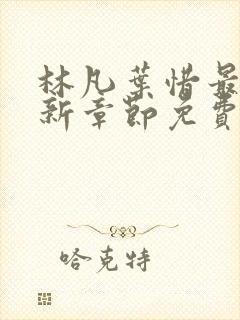 林凡葉惜最
新章節免費
哈克特